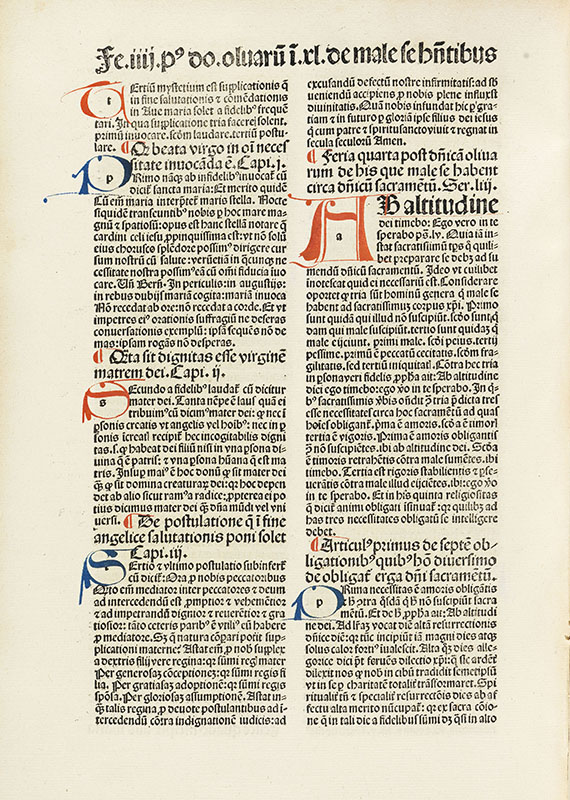 Fe.iiij.pꝰ do.oluarū ī.xl.de male se hn̄tibus
Ertiū mysterium est supplicationis q̄
in fine salutationis ⁊ cōmēdationis
in Aue maria solet a fidelibꝰ frequē
tari. In qua supplicatione tria facere solent.
primū inuocare. scd̄m laudare. tertiū postu-
lare. ¶ Qꝫ beata virgo in oī neces
sitate inuocāda ē. Capi. j.
Rimo nāqꝫ ab infidelibꝰ inuocat̄ cū
dicit̄ sancta maria: Et merito quidē
Cū em̄ maria interpret̄ maris stella. Nocte
siquidē transeuntibꝰ nobis p hoc mare mag-
nū ⁊ spatiosū: opus est hanc stellā notare q̄
cardini celi iesu, ppinquissima est: vt nō solū
eiꝰ chorusco splēdore possimꝰ dirigere cur
sum nostrū cū salute: verūetiā in qcunqꝫ ne
cessitate nostra possimꝰ eā cū om̄i fiducia iuo
care. Un̄ Bern̄. In periculis: in augustijs:
in rebus dubijs mariā cogita: mariā inuoca
Nō recedat ab ore: nō recedat a corde. Et vt
impetres eiꝰ orationis suffragiū ne deseras
conuersationis exemplū: ipsā sequēs nō de-
mas: ipsam rogās nō desperas.
¶ Qn̄ta sit dignitas esse virginē
matrem dei. Capi. ij.
Ecundo a fidelibꝰ laudat̄ cū dicitur
mater dei. Tanta nēpe ē lausꝰ quā ei
tribuimꝰ cū dicimꝰ mater dei: qꝫ nec ī
psonis creatis vt angelis vel hoībꝰ: nec in p
sonis īcreat̄ recipit̄ hec incogitabilis digni
tas. s. qꝫ habeat dei filiū nisi in vna psona di-
uina q̄ ē patris: ⁊ vna psona hūana q̄ est ma
tris. Insup maiꝰ ē hoc donū qꝫ sit mater dei
q̄ꝫ qꝫ sit domina creaturaꝝ dei: qꝛ hoc depen
det ab alio sicut ramꝰ a radice, ppterea ei po
tius dicimus mater dei q̄ꝫ dn̄a mūdi vel vni
uersi. ¶ De postulatione q̄ ī fine
angelice salutationis poni solet
Capi. iij.
Ertio ⁊ vltimo postulatio subinfert̄
cū dicit̄: Ora, p nobis peccatoribus
Orto em̄ mediator inter peccatores ⁊ deum
ad intercedendū est, pmptior ⁊ vehemētior
⁊ ad impetrandū dignior ⁊ reuerētior ⁊ gra
tiosior: tāto ceteris paribꝰ ē vtiliꝰ cū habere
, p mediatore. Sꝫ q̄ natura cōpari potit̄ sup-
plicationi materne? Astat em̄, p nob̄ supplex
a dextris filij vere regina: qꝛ sumi regꝭ mater
Per generosaꝫ cōceptionez: qꝛ sūmi regis fi
lia. Per gratiosaꝫ adoptionē: qꝛ sūmi regis
spōsa. Per gloriosaꝫ assumptionē. Astat in-
q̄ꝫ talis regina, p deuote postulantibus ad ī-
tercedendū cōtra indignationē iudicis: ad
excusandū defectū nostre infirmitatis: ad sb̄
ueniendū accipiens, p nobis plene influxꝰ
diuinitatis. Quā nobis infundat hic p grā-
tiam ⁊ in futuro p gloriā ipse filius dei iesus
q̄ cum patre ⁊ spiritusancto viuit ⁊ regnat in
secula seculorū Amen.
¶ Feria quarta post dn̄icā oliua
rum de his que male se habent
circa dn̄icū sacramētū. Ser. liij.
AB altitudine
dei timebo: Ego vero in te
sperabo ps. lv. Quia iā in-
stat sacratissimū tp̄s q̄ quili
bet preparare se debꝫ ad su
mendū dn̄icū sacramentū. Ideo vt cuilibet
inotescat quid ei necessariū est. Considerare
oportet qꝫ tria sūt hominū genera q̄ male se
habent ad sacratissimū corpus xp̄i. Primo
sunt quidā qui illud nō suscipiūt. scdo sunt q̄
dam qui male suscipiūt. tertio sunt quidaꝫ q̄
male eijciunt. primi male. scd̄i peius. tertij
pessime. primū ē peccatū cecitatis. scd̄m fra-
gilitatis. sed tertiū iniquitatꝭ. Cōtra hec tria
in psona veri fidelis, ppha ait: Ab altitudine
diei ego timebo: ego ꝟo in te sperabo. In qꝰ
bꝰ sacratissimis ꝟbis ondit̄ ꝫ tria p̄dicta tres
esse necessitates circa hoc sacramētū ad quas
hoīes obligant̄. prima ē amoris. scd̄a ē timorꝭ
tertia ē vigoris. Prima ē amoris obligantis
ꝫ nō suscipiētes. ibi ab altitudine dei. Scd̄a
ē timoris retrahētis cōtra male sumētes. ibi
timebo. Tertia est rigoris stabilientis ⁊ pse-
uerātis cōtra male illud eijciētes. ibi: ego ꝟo
in te sperabo. Et in his quinta religiositas
q̄ dicit̄ animi obligari īsinuat̄: qꝛ quilibꝫ ad
has tres necessitates obligatū se intelligere
debet.
¶ Articulꝰ primus de septē ob-
ligationibꝰ quibꝰ hō diuersimo
de obligat̄ erga dn̄i sacramētū.
Rima necessitas ē amoris obligātis
⁊ hꝰ ꝯtra qsdā qꝫ nō suscipiūt sacra
mētū. Et de hꝰ, ppha ait: Ab altitudi
ne dei. Ad lr̄aꝫ vocat diē altā resurrectionis
dn̄ice diē: qꝛ tūc incipiūt iā magni dies atqꝫ
solus calor fortiꝰ īualescit. Alta qꝫ dies alle-
gorice dici pt̄ feruēs dilectio xp̄i: q̄ sic ardēt̄
dilexit nos qꝫ nob̄ in cibū tradidit semetipsū
vt in se p charitatē totalit̄ trāsformaret. Spi
ritualit̄ tn̄ ⁊ specialit̄ resurrectiōis dies ab af
fectu alta merito nūcupat̄: qꝛ ex sacra cōio-
ne q̄ in tali die a fidelibus sūmi dꝫ q̄si in alto